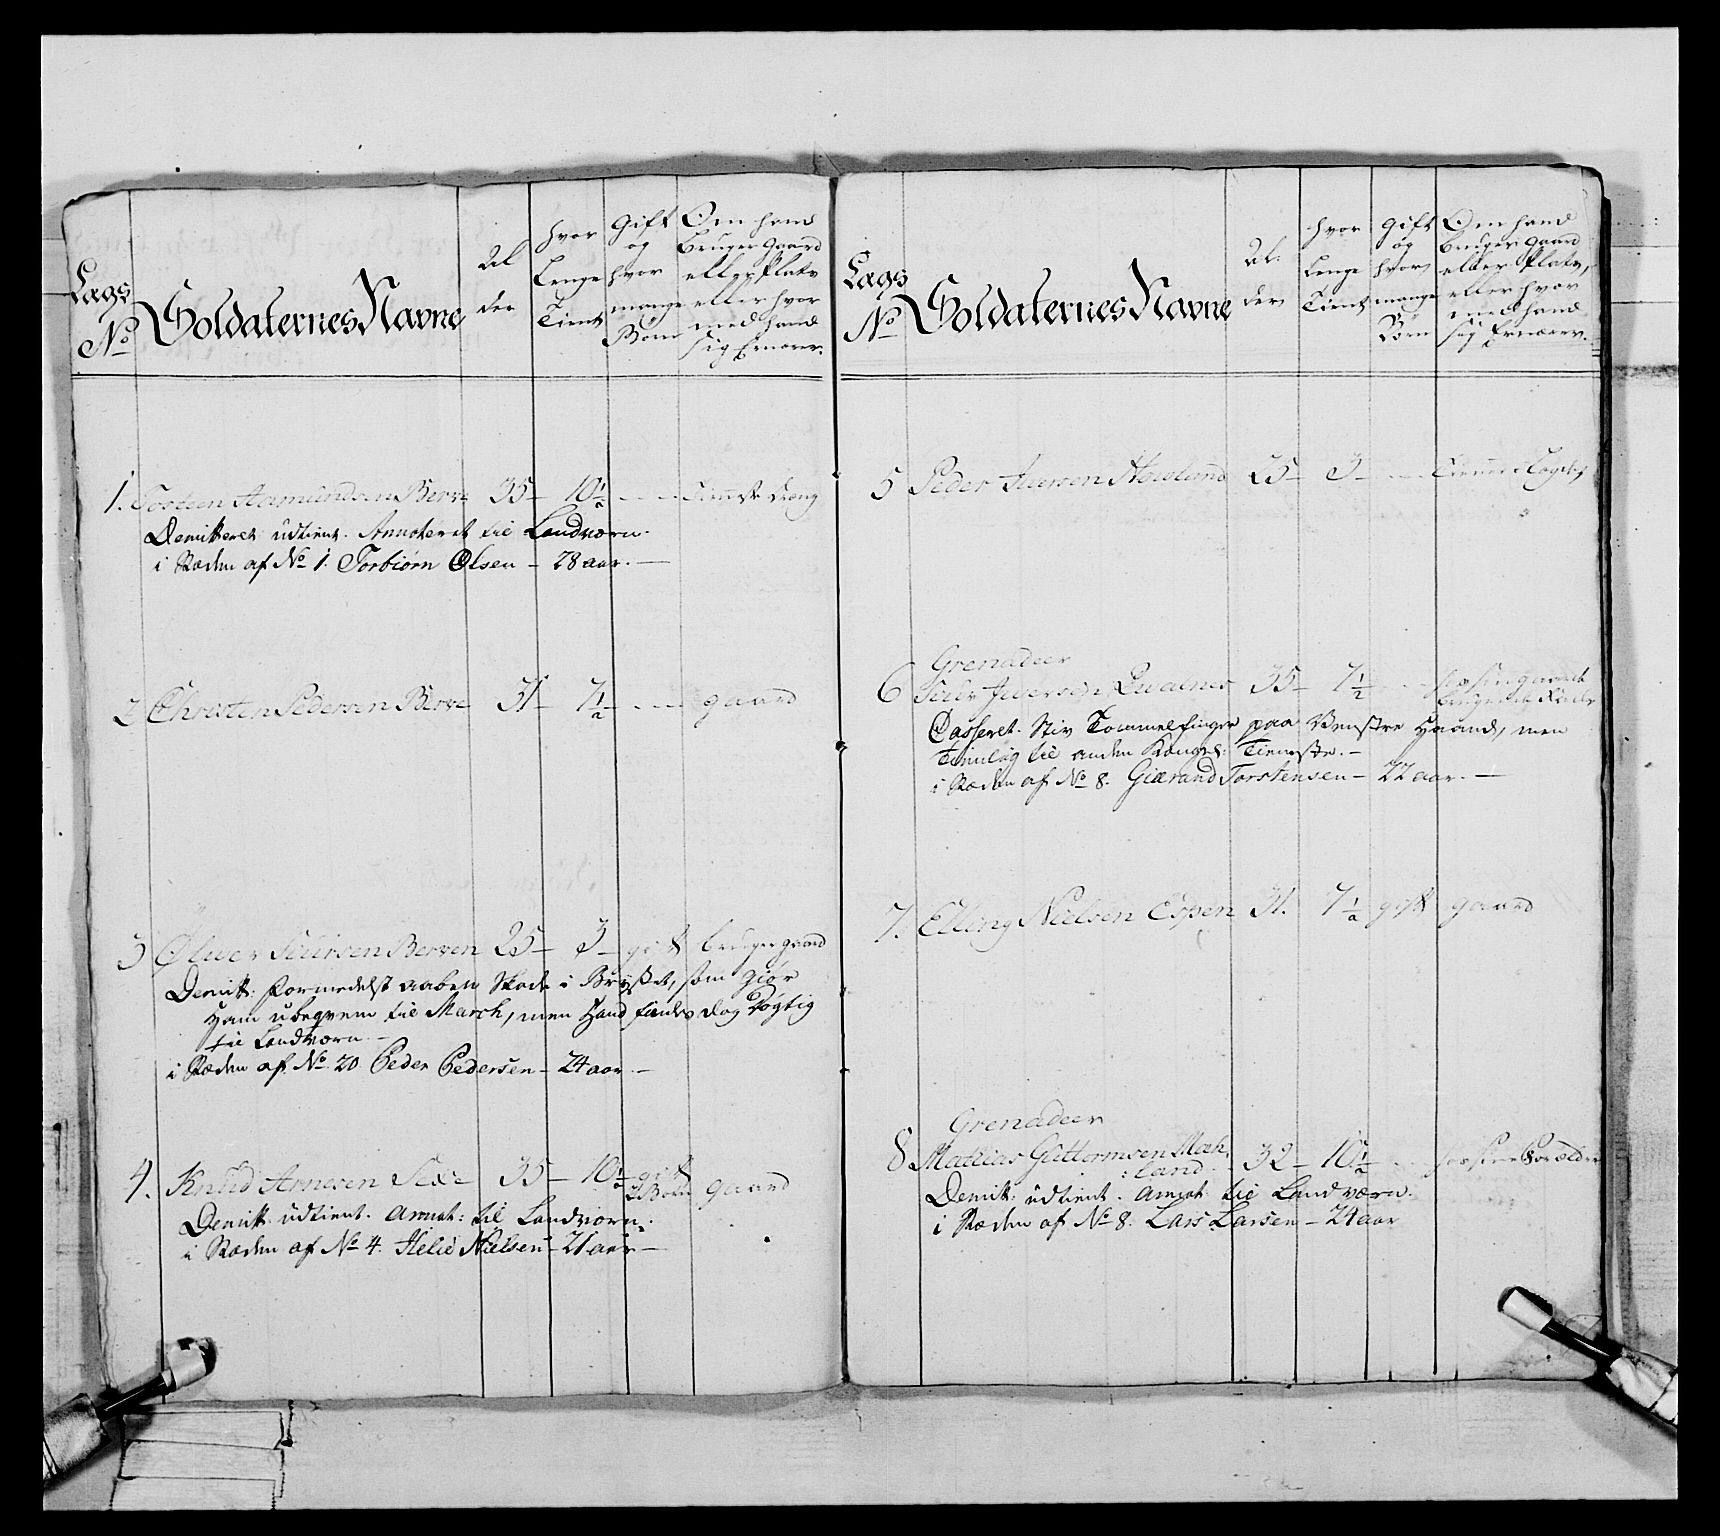 Lags
No
Soldaternes Navne
Al
der
hvor
Lenge
Tient
Gift
og
hvor
mange
Børn
Om hand
bruger gaard
eller Plads
eller hvor
med hand
sig Ernærer.
1. Tosteen Aamundsen Berve 35 — 10 1/2 - - - Tieneste dreng
Demitteret udtient. Annoteret til Landværn.
i Stæden af No 1. Torbiörn Olsen — 28 aar. —
2 Christen Pedersen Berve 31 — 7 1/2 - - - gaard
3 Ølwer Siursen Berven 25 — 3 — gift bruger gaard
Demitt: formedelst aaben Skade i Brÿstet, som giør
Ham ubeqvem til March, men Hand findes dog dögtig
til Landværn. —
i Stæden af No. 20. Peder Pedersen — 24 aar. —
4. Knud Arnesen 35 — 10 1/2 gift gaard
2 Børn
Demitt. udtient. annot: til Landværn.
i Stæden af No 4. Helie Nielsen — 21 aar —
Lags
No
Soldaternes Navne
Al:
der
hvor
Lenge
Tient
Gift
og
hvor
mange
Börn
Om hand
bruger gaard
eller Plads,
eller hvor
med hand
sig Ernærer.
5 Peder Iversen 25 — 3 — - - - Tiener
Grenadeer
6 Siur Iversen Qualnes 35 — 7 1/2 - -
Casseret. Stiv Tommelfinger paa Venstre Haand, men
til anden Konges: Tieneste. —
i Stæden af No 8. Giærand Torstensen — 22 aar. —
7. Elling Nielsen Espen 31. 7 1/2 gift gaard
Grenadeer
8 Mathias Guttormsen Mæh,
: land. 32 — 10 1/2 - - hos sine Forældre
Demitt: udtient. annot: til Landværn.
i Stæden af No 8. Lars Larsen — 24 aar